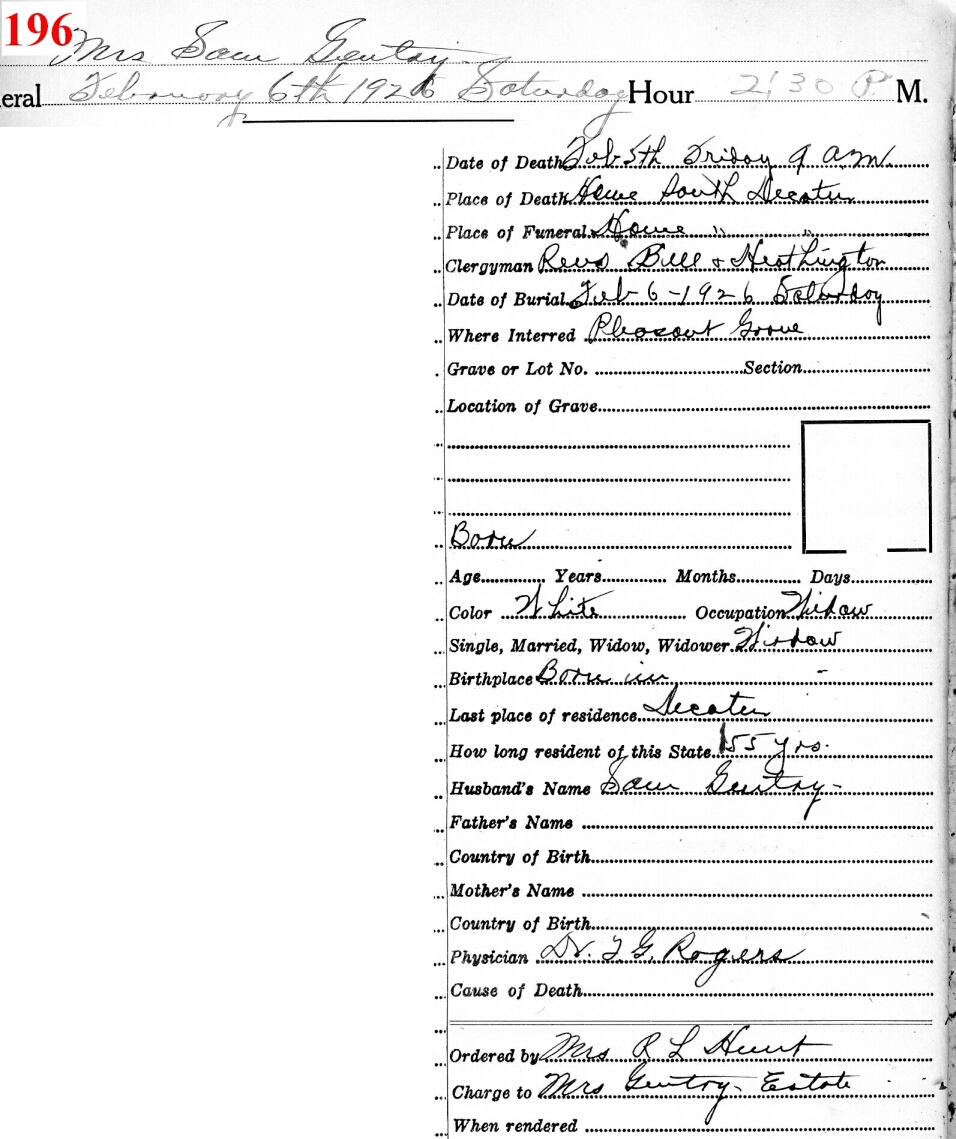 196
Mrs Sam Gentry
eral February 6th 1926 Saturday Hour 2:30 P. M.
Date of Death Feb 5th Friday 9 a.m.
Place of Death Home South Decatur
Place of Funeral Home " "
Clergyman Revs Bell & Heathington
Date of Burial Feb 6-1926 Saturday
Where Interred Pleasant Grove
Grave or Lot No. Section
Location of Grave
Born
Age Years Months Days
Color White Occupation Widow
Single, Married, Widow, Widower. Widow
Birthplace Born in
Last place of residence Decatur
How long resident of this State 55 yrs.
Husband's Name Sam Gentry
Father's Name
Country of Birth
Mother's Name
Country of Birth
Physician Dr. T. G. Rogers
Cause of Death
Ordered by Mrs R L Hunt
Charge to Mrs Gentry Estate
When rendered